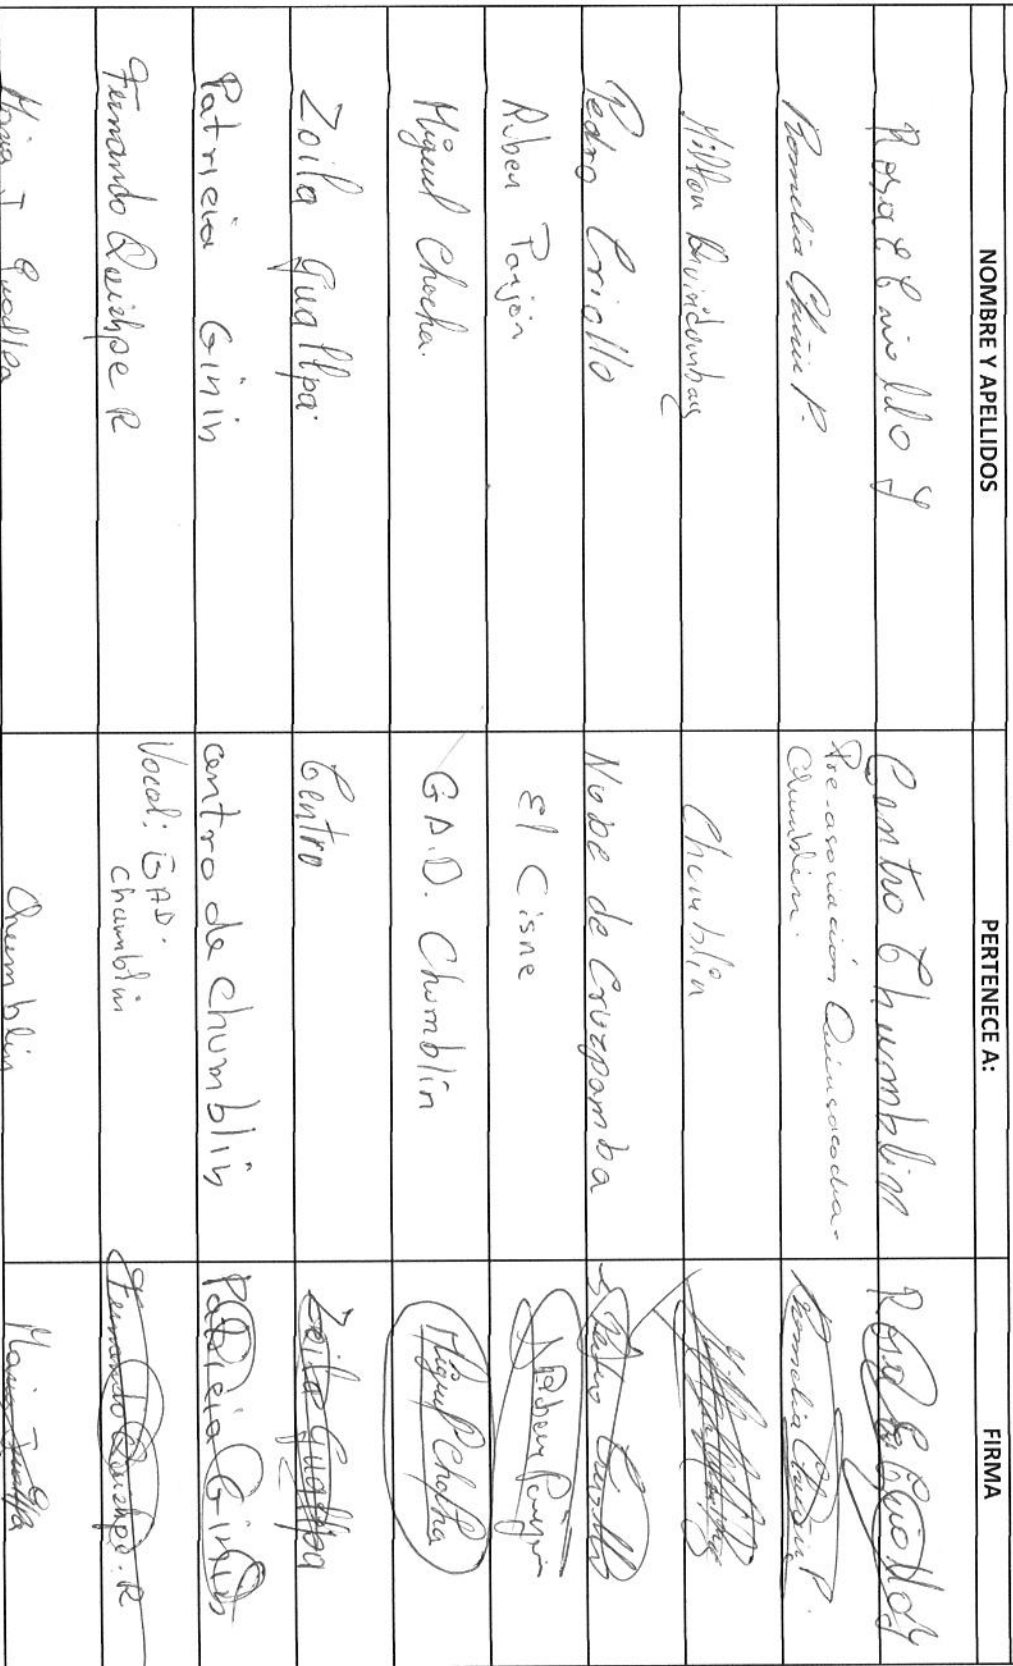 NOMBRE Y APELLIDOS PERTENECE A: FIRMA
Rosa E Criollo Y Centro Chumblin Rosa E Criollo Y
Romelia Chuin P. Pre-asociación Quimsacocha-
Chumblin. Romelia Chuin P.
Milton Chumblin
Pedro Criollo Nube de Cruzpamba Pedro Criollo
Ruben Panjón El Cisne Ruben Panjón
Miguel Chocha. G.A.D. Chumblín Miguel Chocha
Zoila Guallpa. Centro Zoila Guallpa
Patricia Ginin centro de chumblin Patricia Ginin
Fernando Quizhpe R Vocal: GAD.
Chumblin Fernando Quizhpe. R
Maria T Guallpa Chumblin Maria T Guallpa